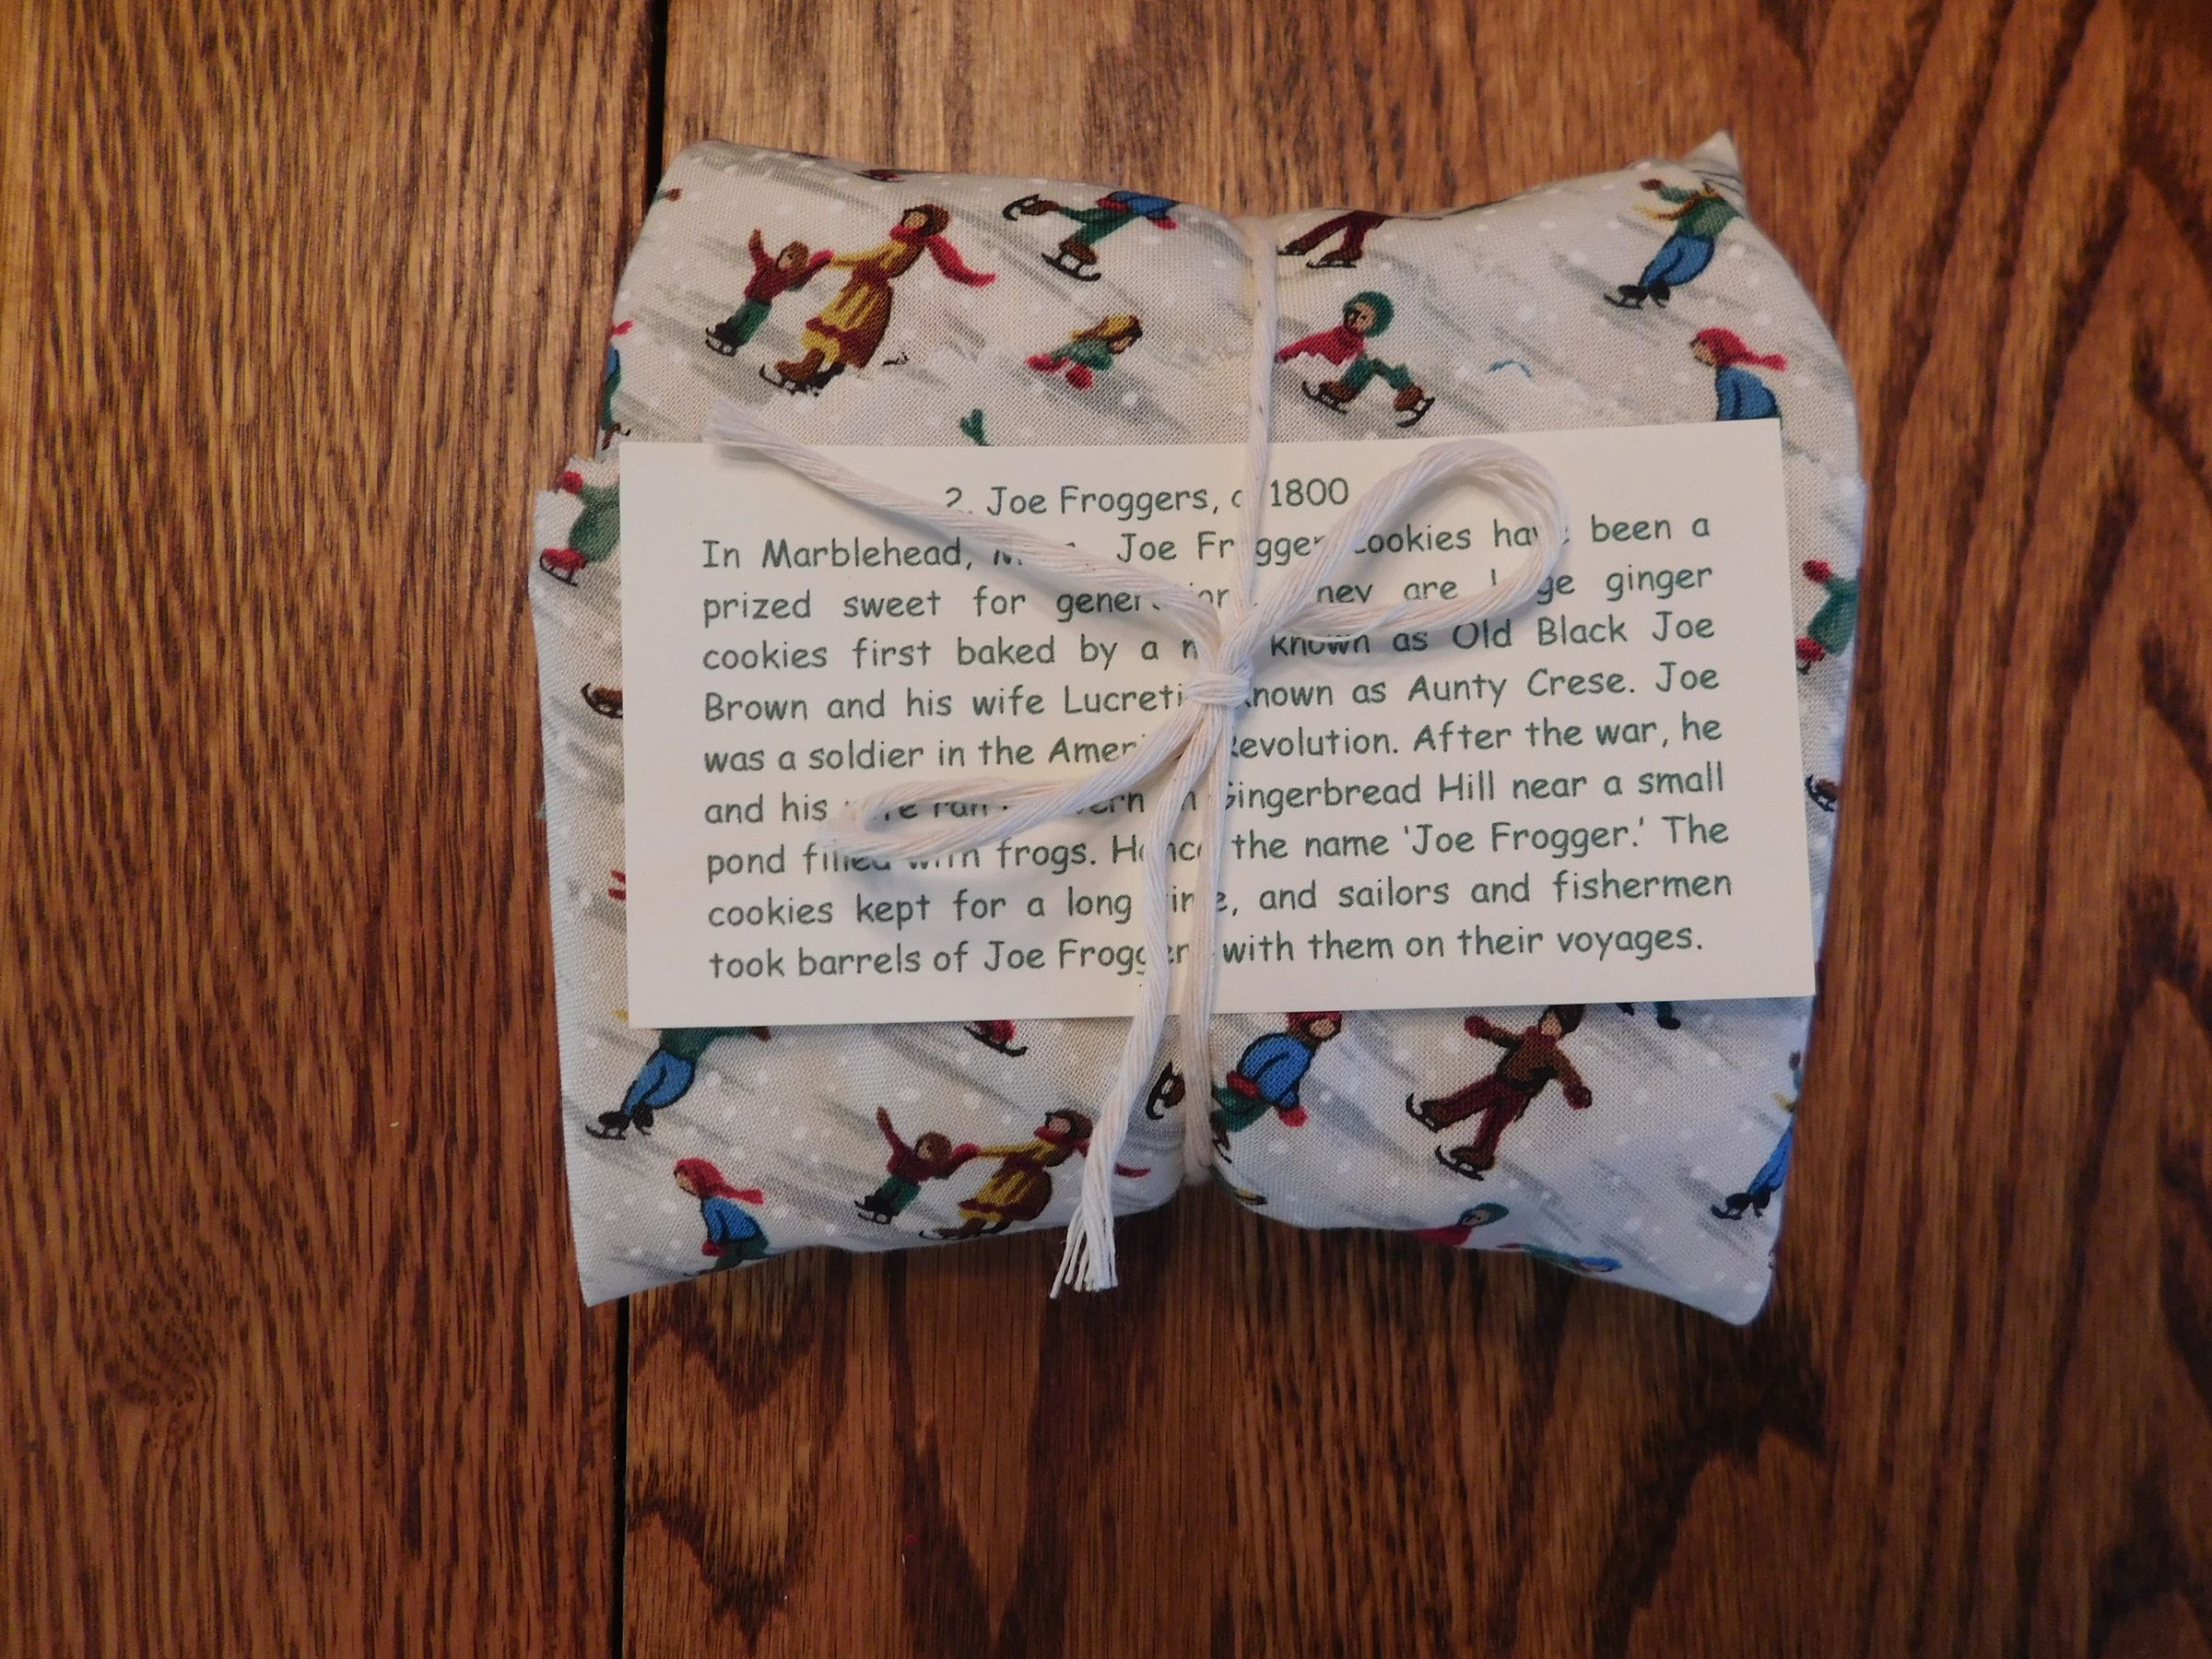 2. Joe Froggers, c 1800
In Marblehead, Joe Frogger cookies have been a
prized sweet for generations. They are large ginger
cookies first baked by a man known as Old Black Joe
Brown and his wife Lucretia known as Aunty Crese. Joe
was a soldier in the American Revolution. After the war, he
and his wife ran a tavern on Gingerbread Hill near a small
pond filled with frogs. Hence the name 'Joe Frogger.' The
cookies kept for a long time, and sailors and fishermen
took barrels of Joe Froggers with them on their voyages.